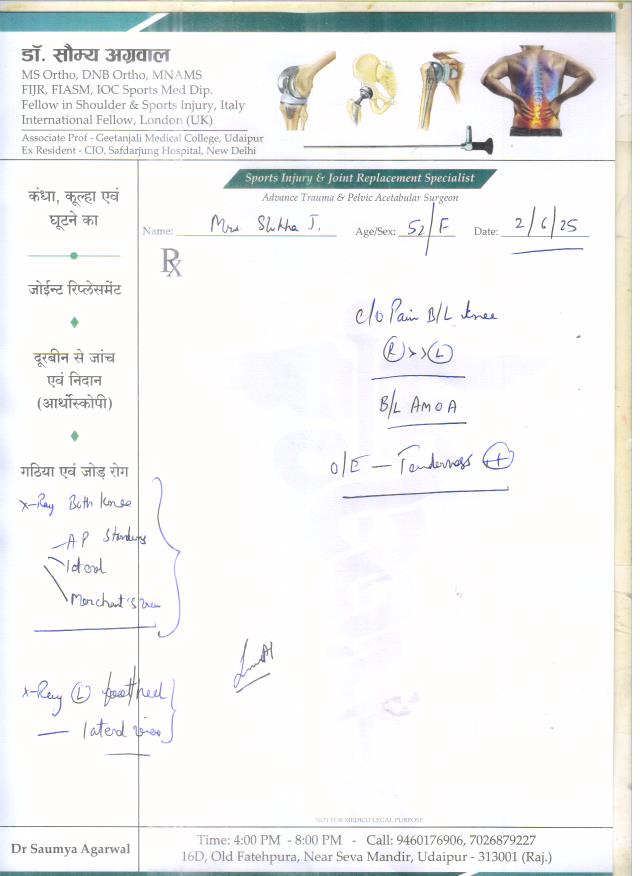 डॉ. सौम्य अग्रवाल
MS Ortho, DNB Ortho, MNAMS
FIJR, FIASM, IOC Sports Med Dip.
Fellow in Shoulder & Sports Injury, Italy
International Fellow, London (UK)
Associate Prof - Geetanjali Medical College, Udaipur
Ex Resident - CIO, Safdarjung Hospital, New Delhi
Sports Injury & Joint Replacement Specialist
Advance Trauma & Pelvic Acetabular Surgeon
Name: Mrs J. Age/Sex: 52/F Date: 2/6/25
Rx
कंधा, कूल्हा एवं
घूटने का
जोईन्ट रिप्लेसमेंट
दूरबीन से जांच
एवं निदान
(आर्थोस्कोपी)
गठिया एवं जोड़ रोग
c/o Pain B/L knee
(R)>>(L)
B/L AMOA
O/E — Tenderness +
X-Ray Both Knee
AP Standing
lateral
Merchant's view
X-Ray (L) foot heel
— lateral view
NOT FOR MEDICO LEGAL PURPOSE
Dr Saumya Agarwal
Time: 4:00 PM - 8:00 PM - Call: 9460176906, 7026879227
16D, Old Fatehpura, Near Seva Mandir, Udaipur - 313001 (Raj.)